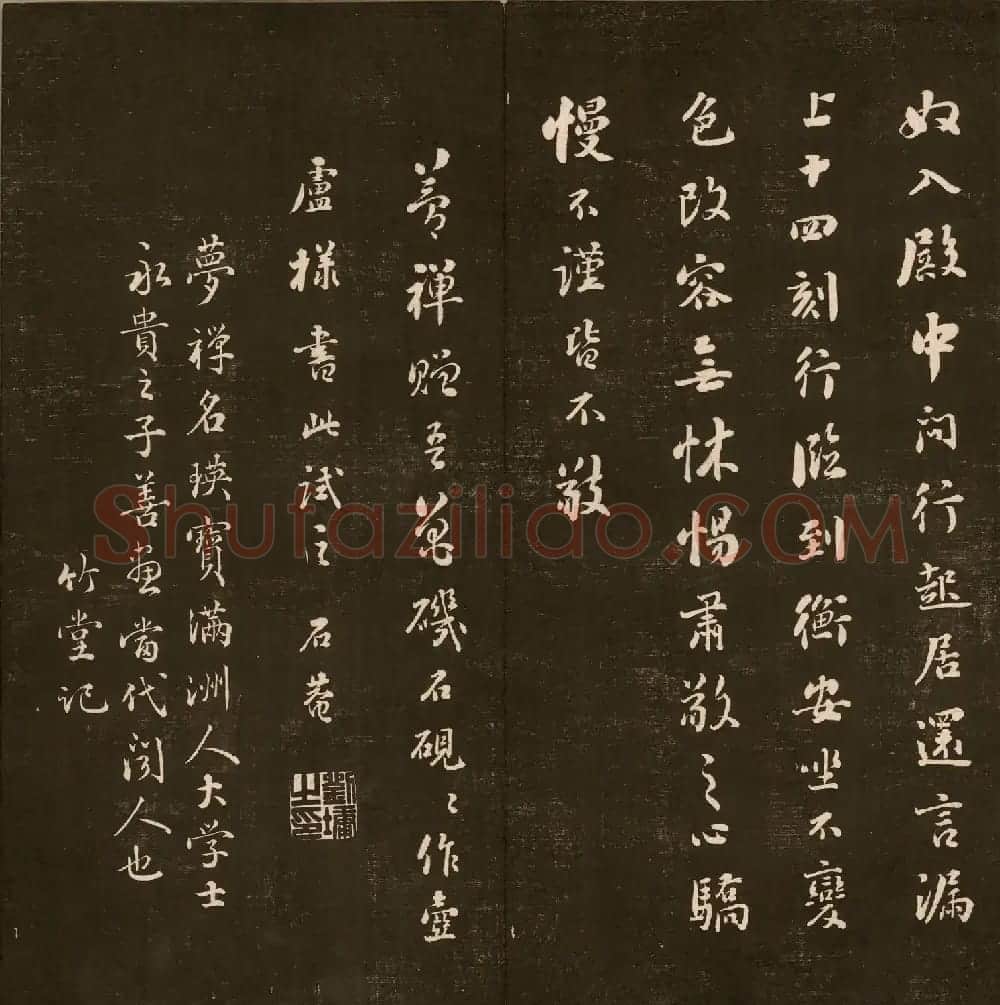 奴入殿中问行起居還言漏
上十四刻行臨到衡安坐不變
色改容無怵惕肅敬之心驕
慢不謹皆不敬
夢禅贈吾萬磯石硯〻作壺
盧樣書此試之 石菴
劉墉之印
夢禅名瑛寶滿洲人大学士
永貴之子善画當代闻人也
竹堂记
Shufaziliao.COM